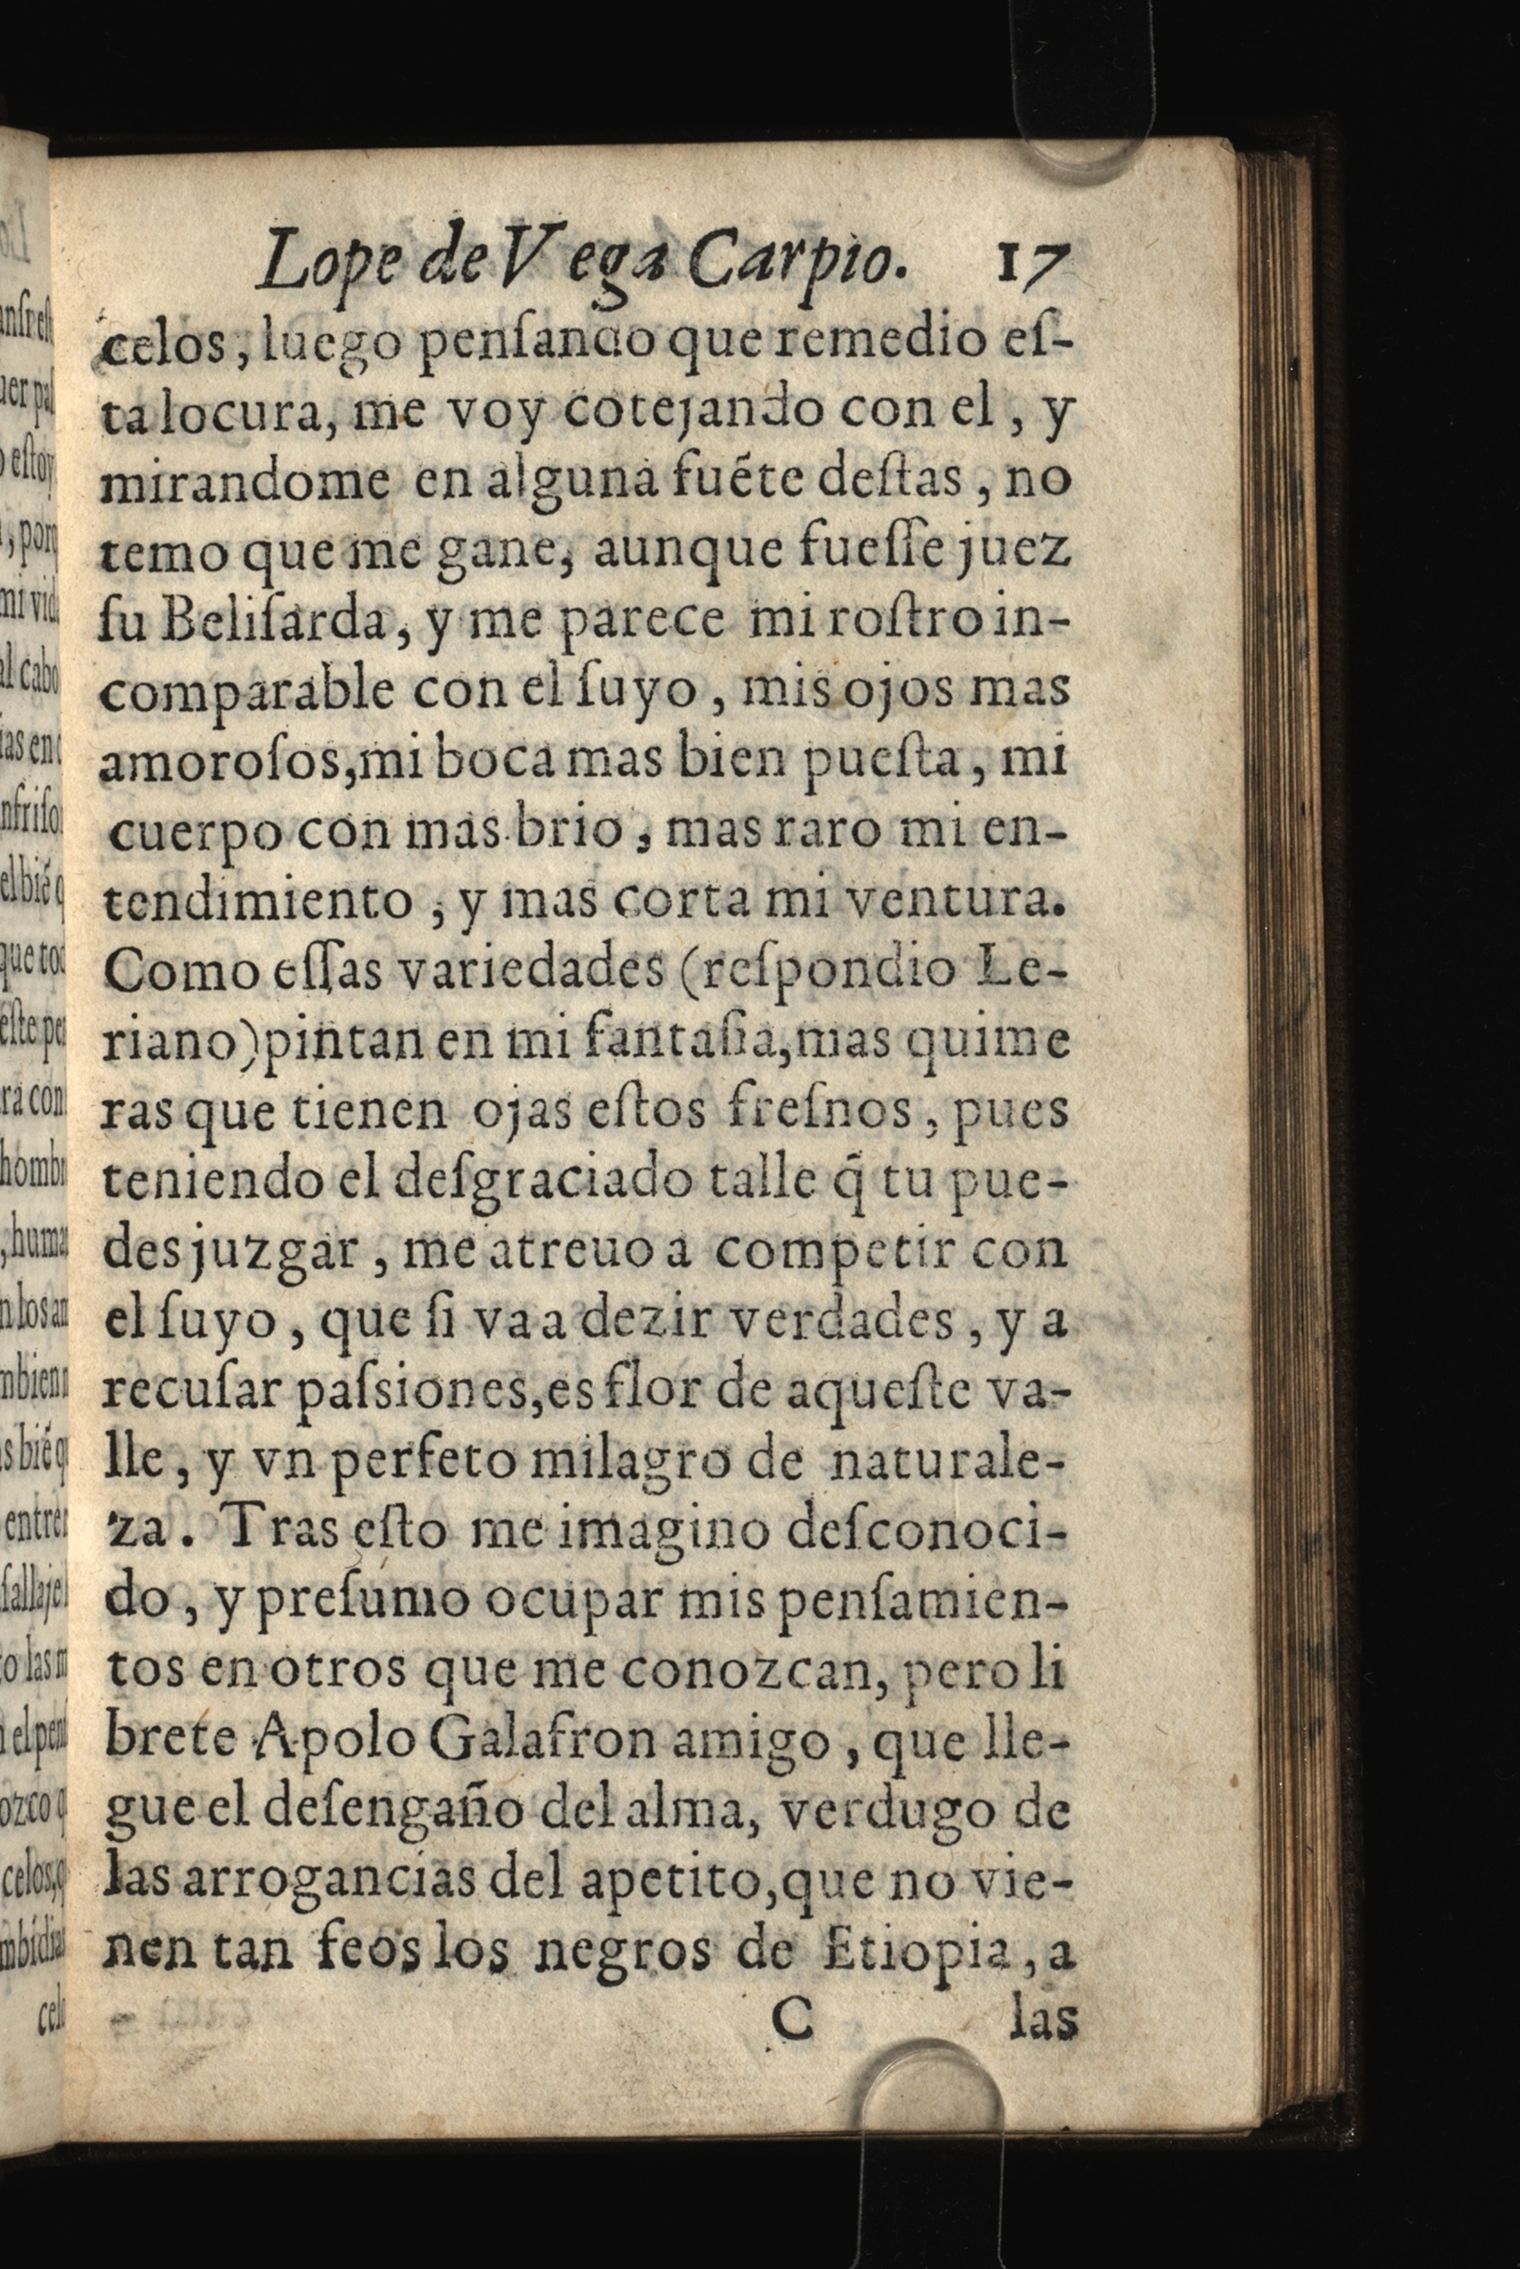 Lope de Vega Carpio. 17
celos, luego penſando que remedio eſ-
ta locura, me voy cotejando con el, y
mirandome en alguna fuẽte deſtas, no
temo que me gane, aunque fueſſe juez
ſu Beliſarda, y me parece mi roſtro in-
comparable con el ſuyo, mis ojos mas
amoroſos,mi boca mas bien pueſta, mi
cuerpo con mas brio, mas raro mi en-
tendimiento, y mas corta mi ventura.
Como eſſas variedades (reſpondio Le-
riano)pintan en mi fantaſia,mas quime
ras que tienen ojas eſtos freſnos, pues
teniendo el deſgraciado talle q̃ tu pue-
des juzgar, me atreuo a competir con
el ſuyo, que ſi va a dezir verdades, y a
recuſar paſsiones,es flor de aqueſte va-
lle, y vn perfeto milagro de naturale-
za. Tras eſto me imagino deſconoci-
do, y preſumo ocupar mis penſamien-
tos en otros que me conozcan, pero li
brete Apolo Galafron amigo, que lle-
gue el deſengaño del alma, verdugo de
las arrogancias del apetito,que no vie-
nen tan feos los negros de Etiopia, a
C las